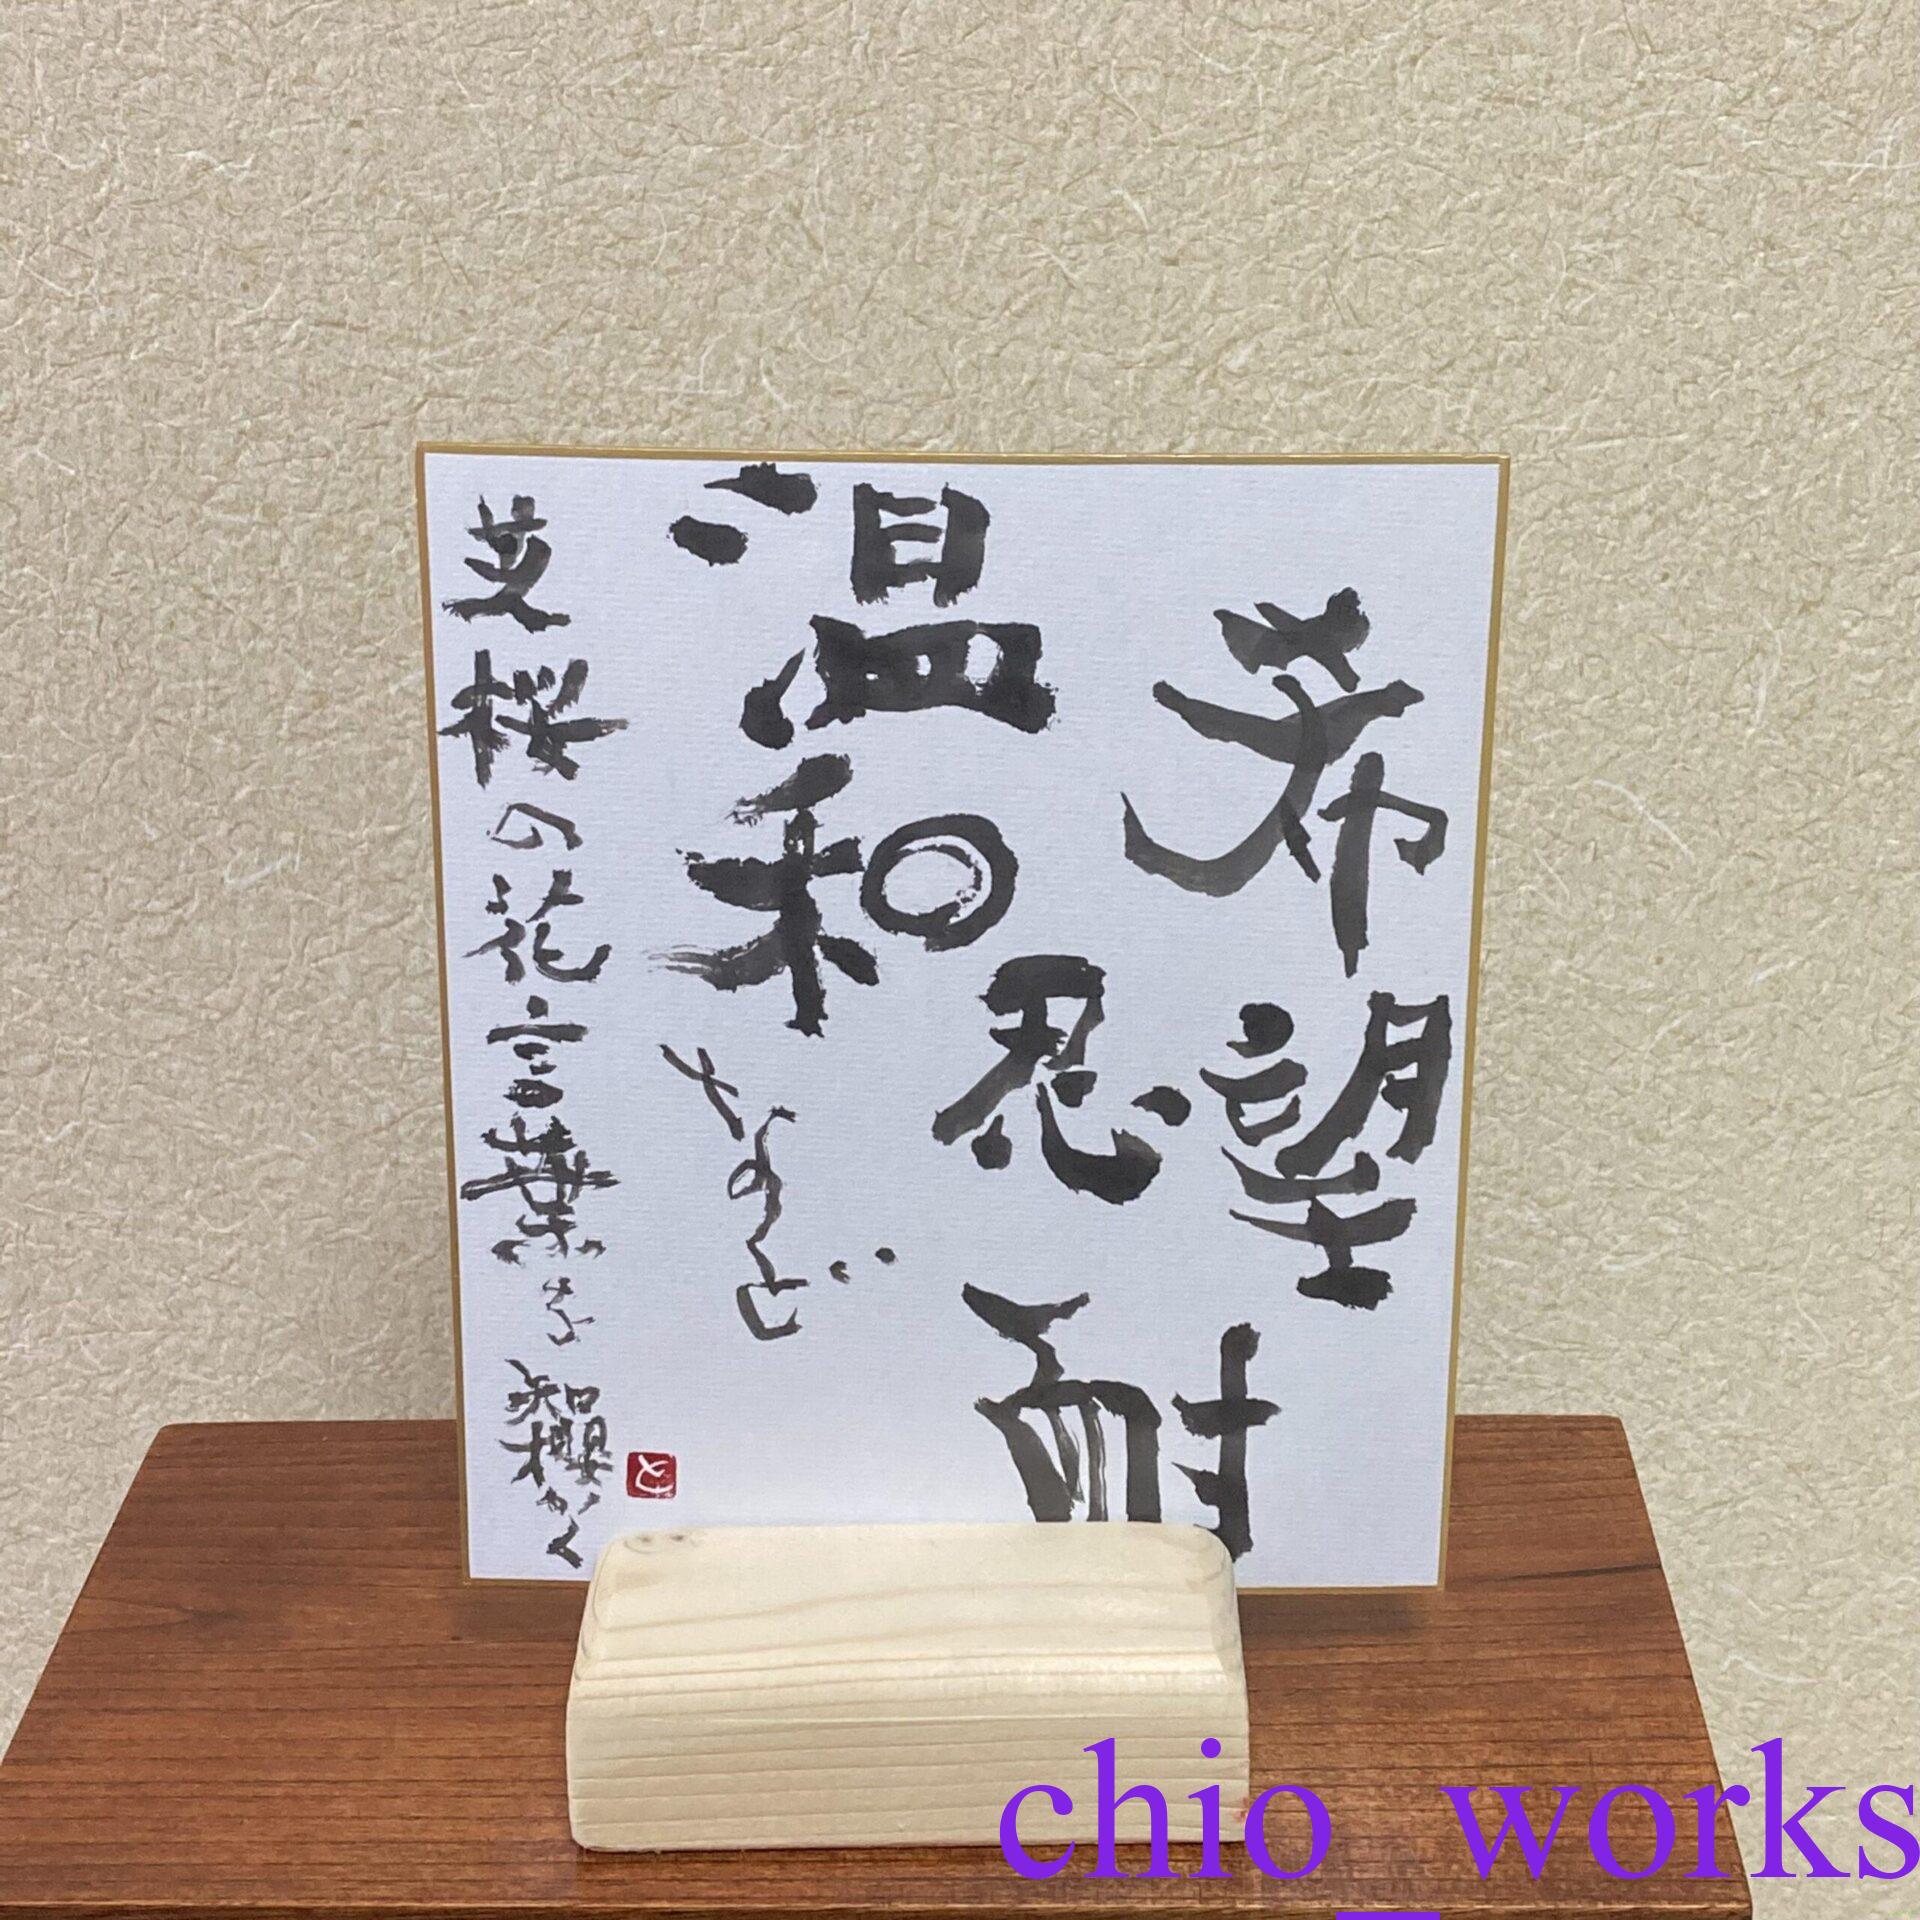 希望
忍耐
温和
など
芝桜の花言葉を 知櫻かく
と
chio_works